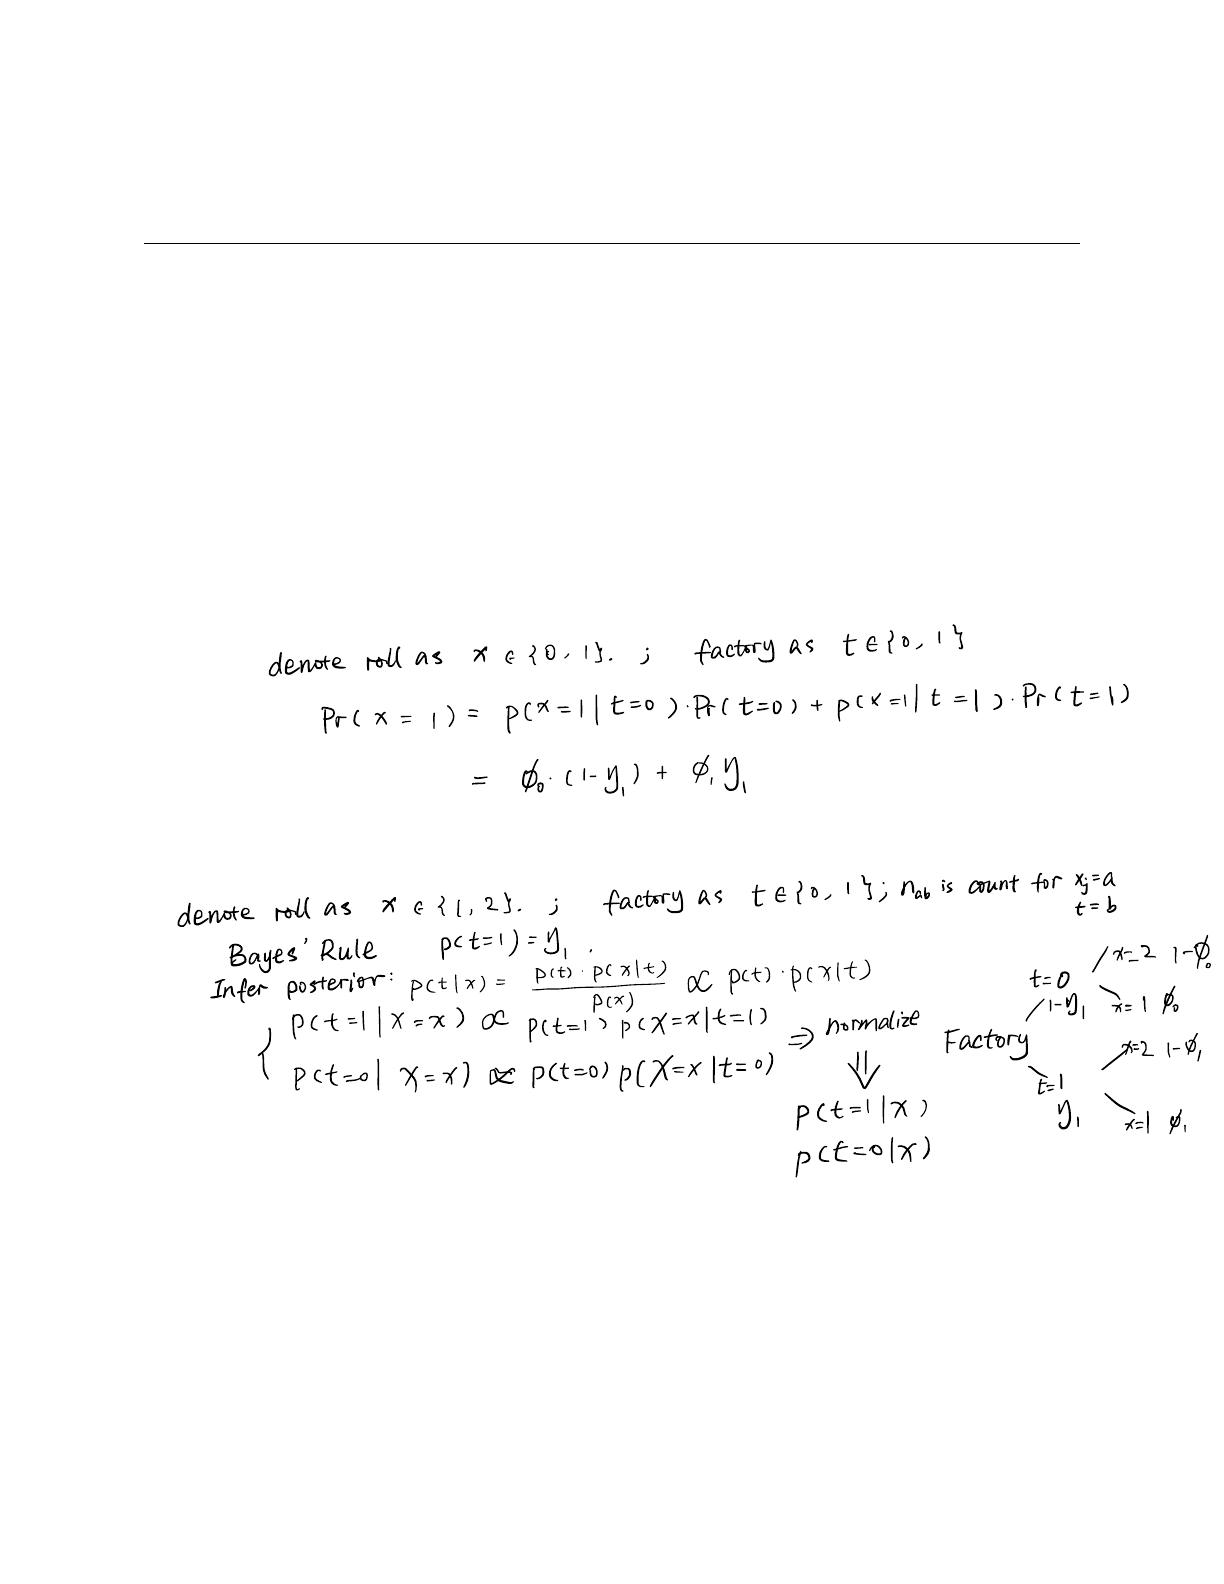 denote roll as x ∈ {0, 1}. ; factory as t ∈ {0, 1}
Pr( x = 1 ) = p(x=1 | t=0 ) · Pr( t=0 ) + p(x=1 | t=1 ) · Pr( t=1 )
= ϕ₀ · (1-y₁) + ϕ₁ y₁
denote roll as x ∈ {1, 2}. ; factory as t ∈ {0, 1}; n_ab is count for x_j=a
t=b
Bayes' Rule p(t=1) = y₁ .
Infer posterior: p(t|x) = p(t) · p(x|t) / p(x) ∝ p(t) · p(x|t)
{ p(t=1 | X=x) ∝ p(t=1) p(X=x|t=1)
p(t=0 | X=x) ∝ p(t=0) p(X=x|t=0)
⇒ normalize
⇓
p(t=1|x)
p(t=0|x)
x=2 1-ϕ₀
t=0
1-y₁ x=1 ϕ₀
Factory x=2 1-ϕ₁
t=1
y₁ x=1 ϕ₁